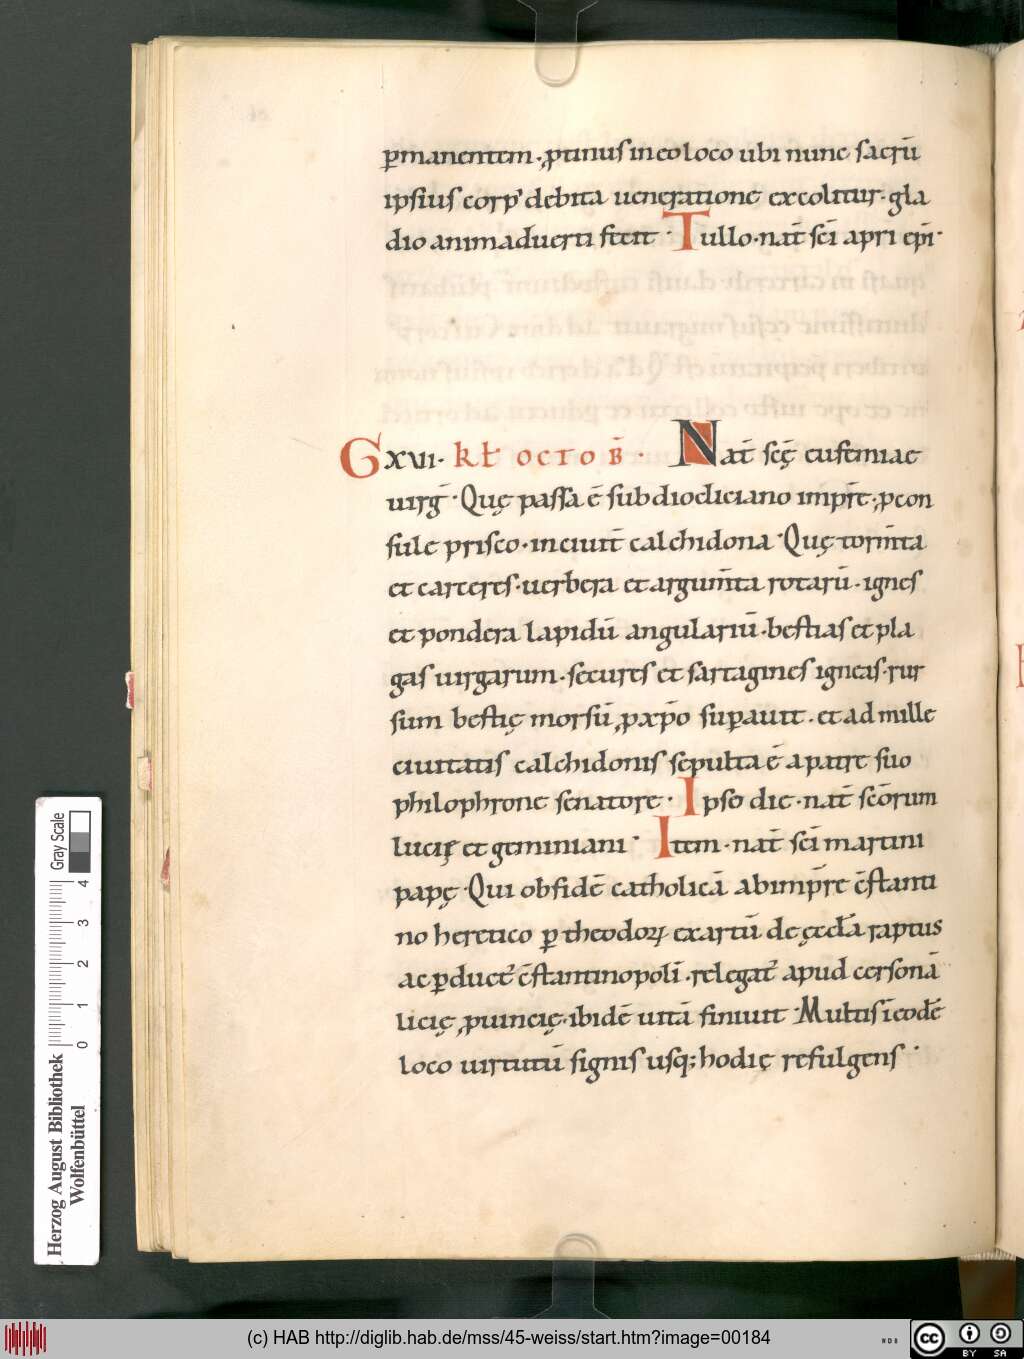 ꝑmanentem. ꝓtinus in eo loco ubi nunc sacrū
ipsius corpꝰ debita ueneratione excolitur. gla
dio animaduerti fecit. Tullo. nat̄ sc̄i apri ep̄i.
G xvi. kł octob̄. Nat̄ sc̄ę eufemiae
uirḡ. Quę passa ē sub diocliciano imp̄re; ꝓcon
sule prisco. in ciuit̄ calchidona. Quę torm̄ta
et carceres. uerbera et argum̄ta rotarū. ignes
et pondera lapidū angulariū. bestias et pla
gas uirgarum. secures et sartagines igneas. rur
sum bestię morsū, p xp̄o suꝑauit. et ad mille
ciuitatis calchidonis sepulta ē a patre suo
philophrone senatore. Ipso die. nat̄ sc̄orum
lucię et geminiani. Item. nat̄ sc̄i martini
papę. Qui ob fidē catholicā ab imp̄re c̄stanti
no heretico ꝑ theodoꝝ exarcū de ęccła raptus
ac ꝑductꝰ c̄stantinopolī. relegatꝰ apud cersonā
licię ꝓuincię. ibidē uitā finiuit. Multis ī eodē
loco uirtutū signis usq; hodię refulgens.
Gray Scale
4
3
2
1
0
Herzog August Bibliothek
Wolfenbüttel
(c) HAB http://diglib.hab.de/mss/45-weiss/start.htm?image=00184
cc BY SA